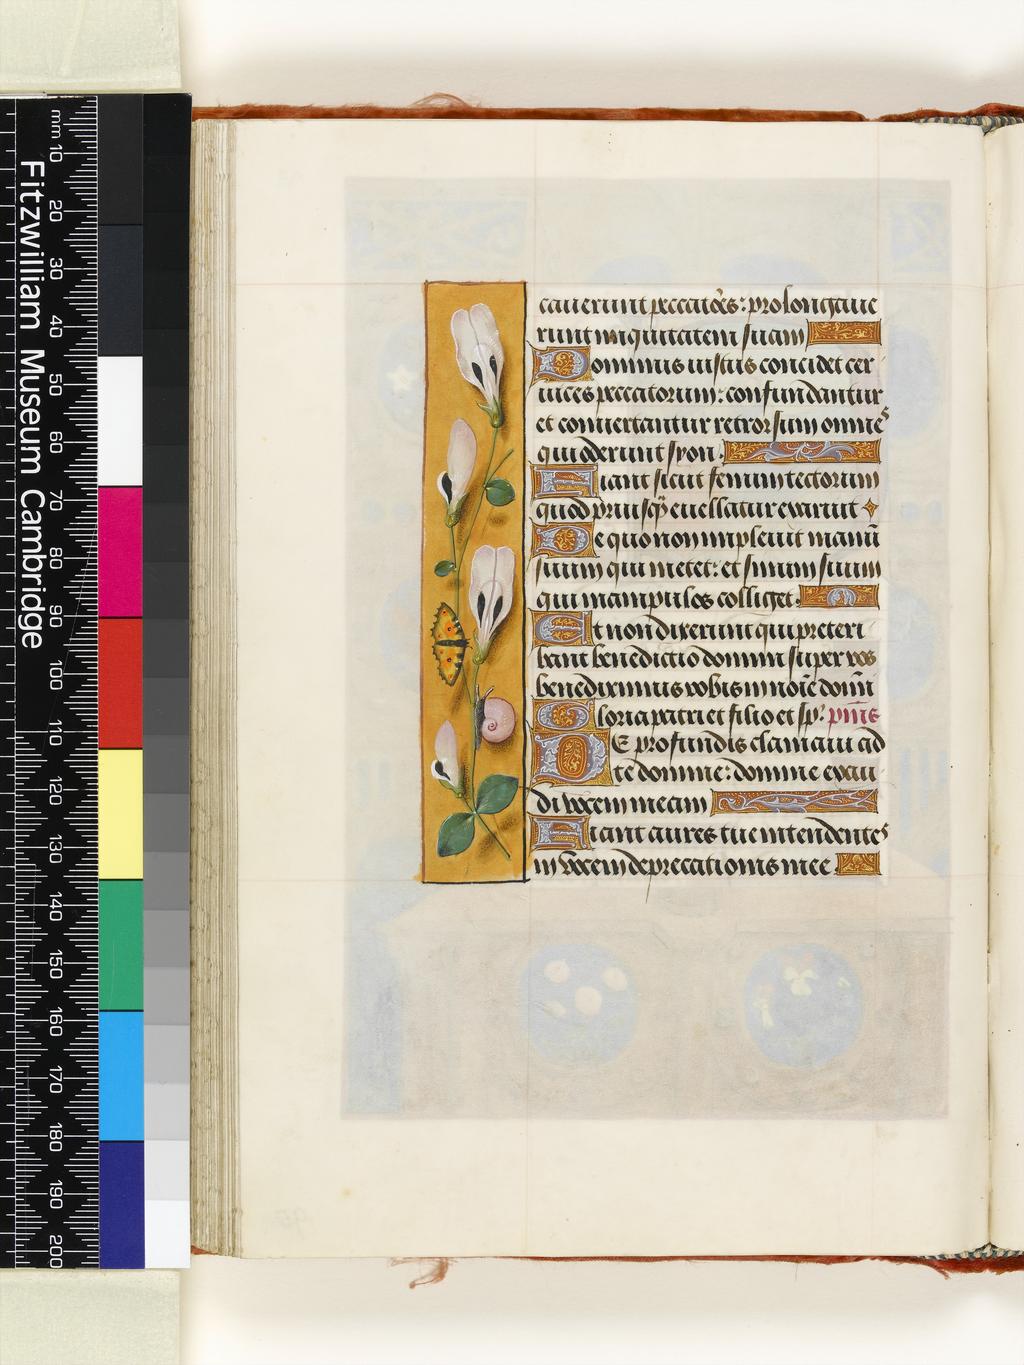 Fitzwilliam Museum Cambridge
mm 10 20 30 40 50 60 70 80 90 100 110 120 130 140 150 160 170 180 190 200
cauerunt peccatões: prolongaue
runt iniquitatem suam
Dominus iustus concidet cer
uices peccatorum: confundantur
et conuertantur retrorsum omnes
qui oderunt syon.
Fiant sicut fenum tectorum
quod priusq̃ euellatur exaruit
De quo non impleuit manū
suum qui metet: et sinum suum
qui manipulos colliget.
Et non dixerunt qui preteri
bant benedictio domini super vos
benediximus vobis in noīe domī
Gloria patri et filio et sp̄. p̄mus
DE profundis clamaui ad
te domine: domine exau
di vocem meam
Fiant aures tue intendentes
in vocem deprecationis mee.